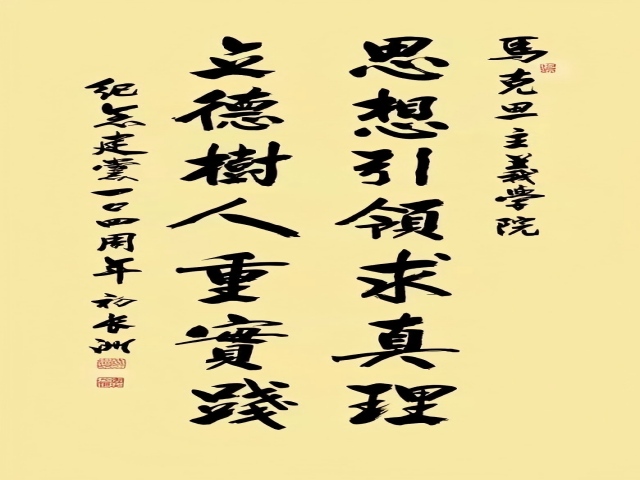 馬克思主義學院
思想引領求真理
立德樹人重實踐
紀念建黨一〇四周年 初長洲